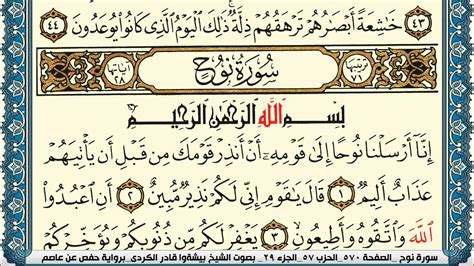 ٤٣ خَٰشِعَةً أَبۡصَٰرُهُمۡ تَرۡهَقُهُمۡ ذِلَّةٞۚ ذَٰلِكَ ٱلۡيَوۡمُ ٱلَّذِي كَانُواْ يُوعَدُونَ ٤٤
ترتيبها ٧١ سُورَةُ نُوحٍ آياتها ٢٨
بِسۡمِ ٱللَّهِ ٱلرَّحۡمَٰنِ ٱلرَّحِيمِ
إِنَّآ أَرۡسَلۡنَا نُوحًا إِلَىٰ قَوۡمِهِۦٓ أَنۡ أَنذِرۡ قَوۡمَكَ مِن قَبۡلِ أَن يَأۡتِيَهُمۡ
عَذَابٌ أَلِيمٞ ١ قَالَ يَٰقَوۡمِ إِنِّي لَكُمۡ نَذِيرٞ مُّبِينٌ ٢ أَنِ ٱعۡبُدُواْ
ٱللَّهَ وَٱتَّقُوهُ وَأَطِيعُونِ ٣ يَغۡفِرۡ لَكُم مِّن ذُنُوبِكُمۡ وَيُؤَخِّرۡكُمۡ
سورة نوح _ الصفحة ٥٧٠_ الحزب ٥٧_ الجزء ٢٩_ بصوت الشيخ بيشةوا قادر الكردى_ برواية حفص عن عاصم